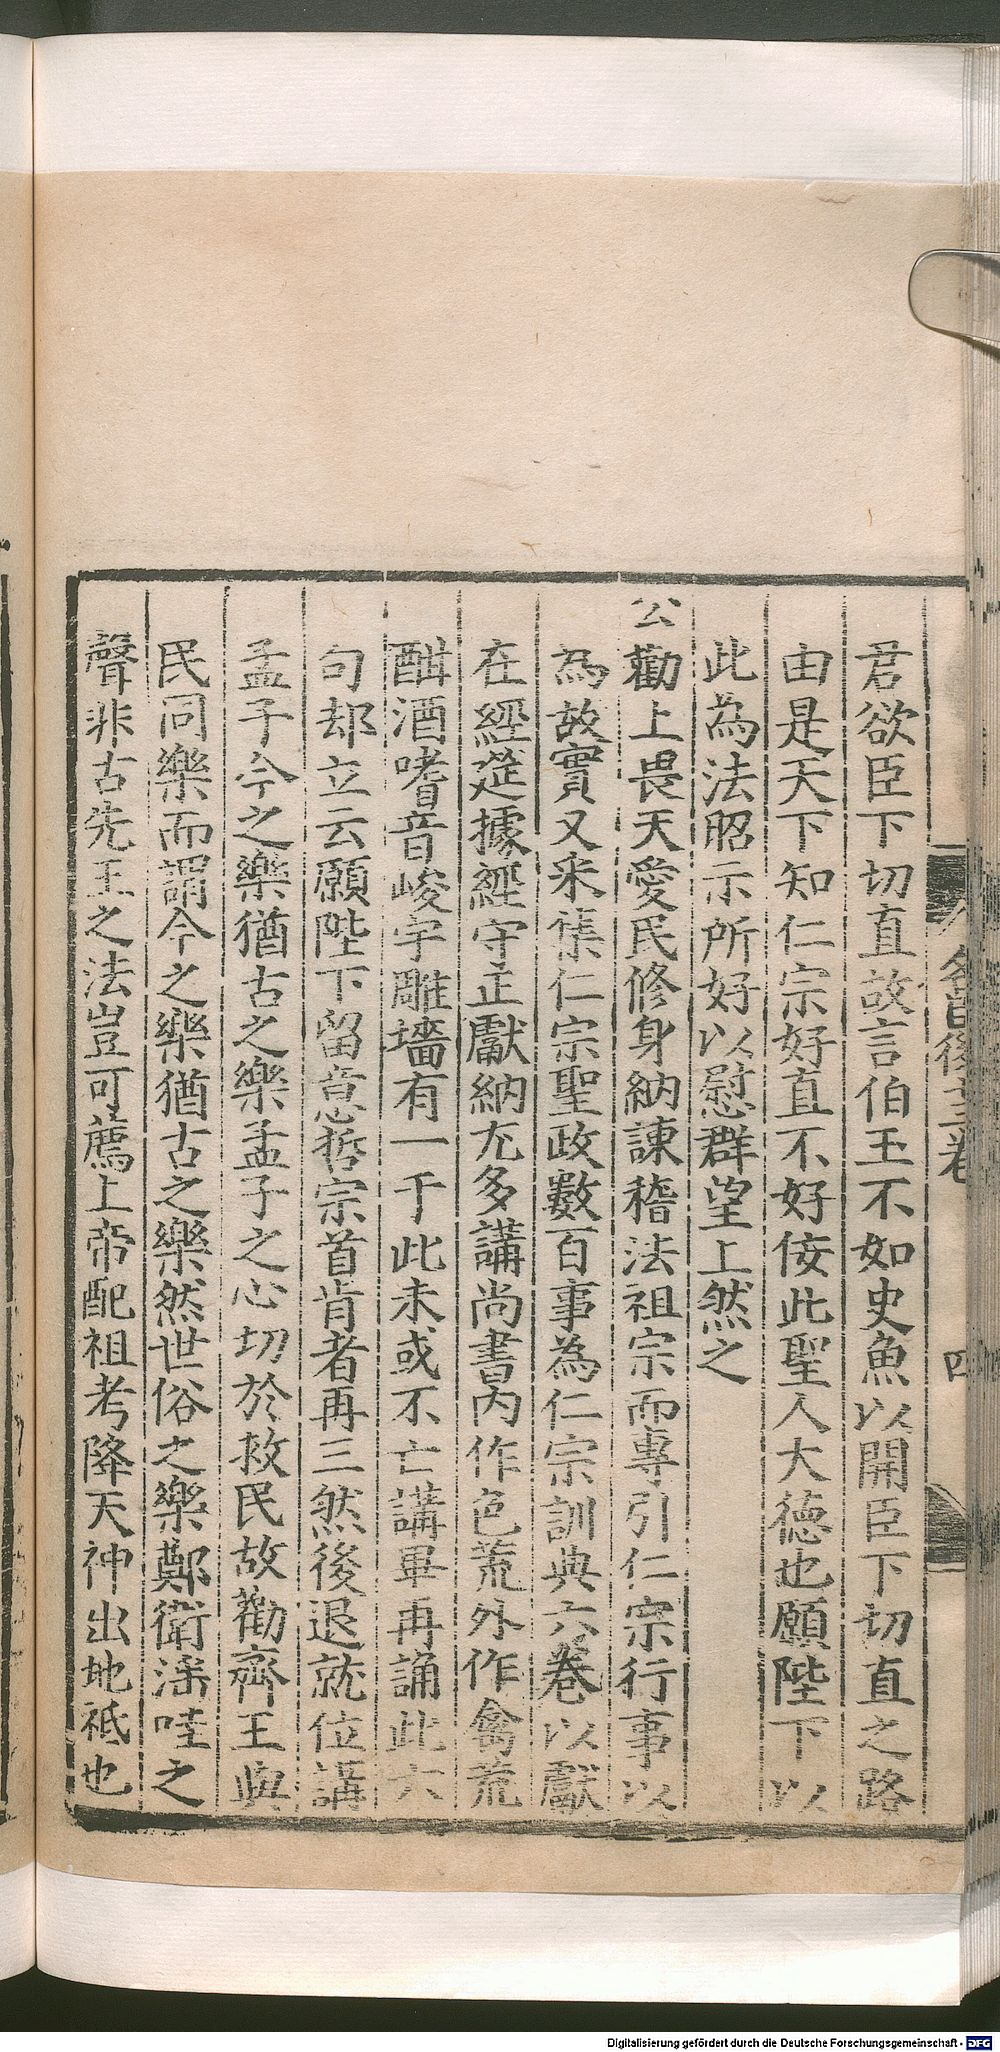 君欲臣下切直故言伯玉不如史魚以開臣下切直之路
由是天下知仁宗好直不好佞此聖人大德也願陛下以
此為法昭示所好以慰群望上然之
公勸上畏天愛民修身納諫稽法祖宗而專引仁宗行事以
為故實又采集仁宗聖政數百事為仁宗訓典六卷以獻
在經莚據經守正獻納尤多講尚書內作色荒外作禽荒
酣酒嗜音峻宇雕墻有一于此未或不亡講畢再誦此六
句却立云願陛下留意哲宗首肯者再三然後退就位講
孟子今之樂猶古之樂孟子之心切於救民故勸齊王與
民同樂而謂今之樂猶古之樂然世俗之樂鄭衛滛哇之
聲非古先王之法豈可薦上帝配祖考降天神出地祗也
名臣後十三卷
四
Digitalisierung gefördert durch die Deutsche Forschungsgemeinschaft - DFG